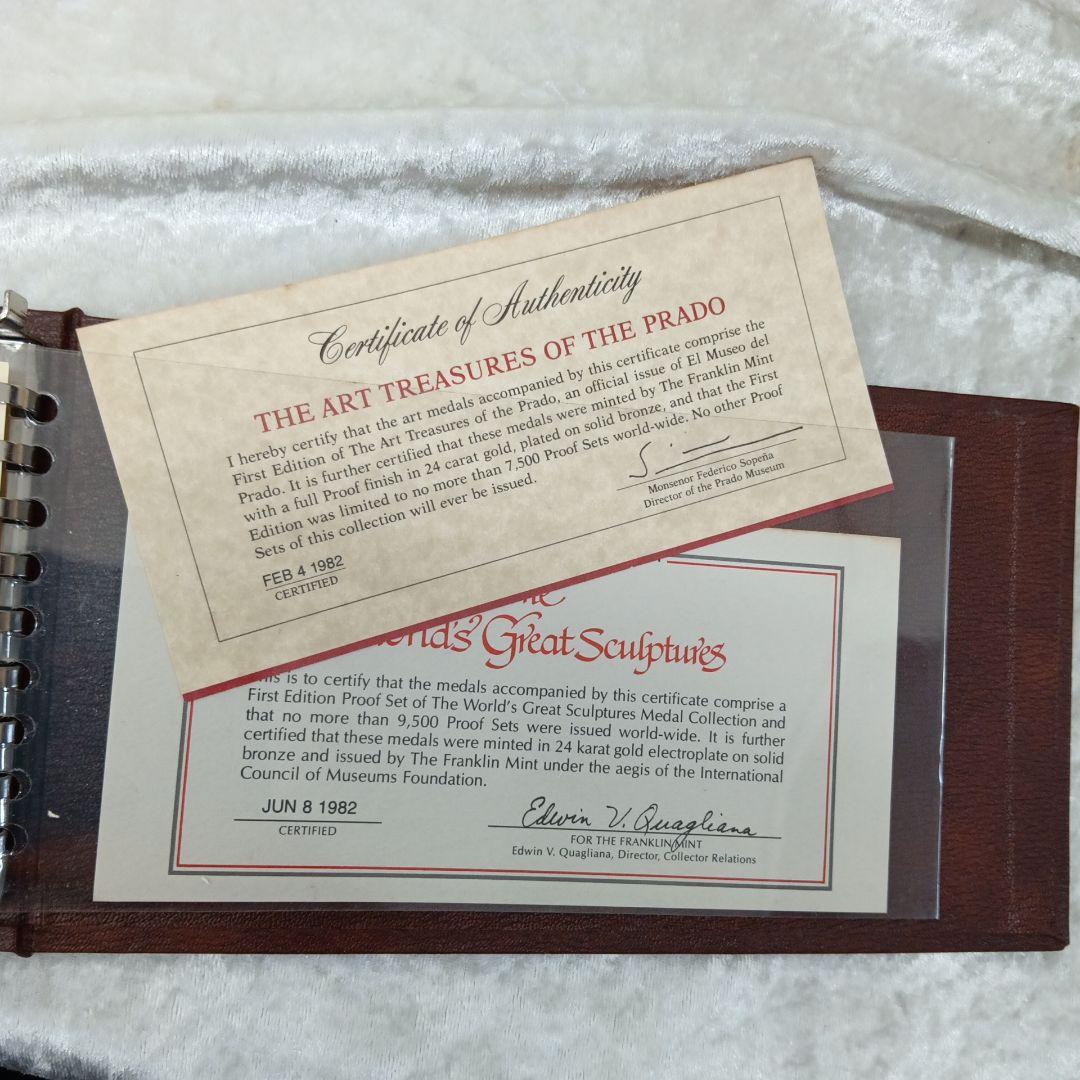 Certificate of Authenticity
THE ART TREASURES OF THE PRADO
I hereby certify that the art medals accompanied by this certificate comprise the
First Edition of The Art Treasures of the Prado, an official issue of El Museo del
Prado. It is further certified that these medals were minted by The Franklin Mint
with a full Proof finish in 24 carat gold, plated on solid bronze, and that the First
Edition was limited to no more than 7,500 Proof Sets world-wide. No other Proof
Sets of this collection will ever be issued.
Monsenor Federico Sopeña
Director of the Prado Museum
FEB 4 1982
CERTIFIED
Great Sculptures
is to certify that the medals accompanied by this certificate comprise a
First Edition Proof Set of The World's Great Sculptures Medal Collection and
that no more than 9,500 Proof Sets were issued world-wide. It is further
certified that these medals were minted in 24 karat gold electroplate on solid
bronze and issued by The Franklin Mint under the aegis of the International
Council of Museums Foundation.
JUN 8 1982
CERTIFIED
Edwin V. Quagliana
FOR THE FRANKLIN MINT
Edwin V. Quagliana, Director, Collector Relations